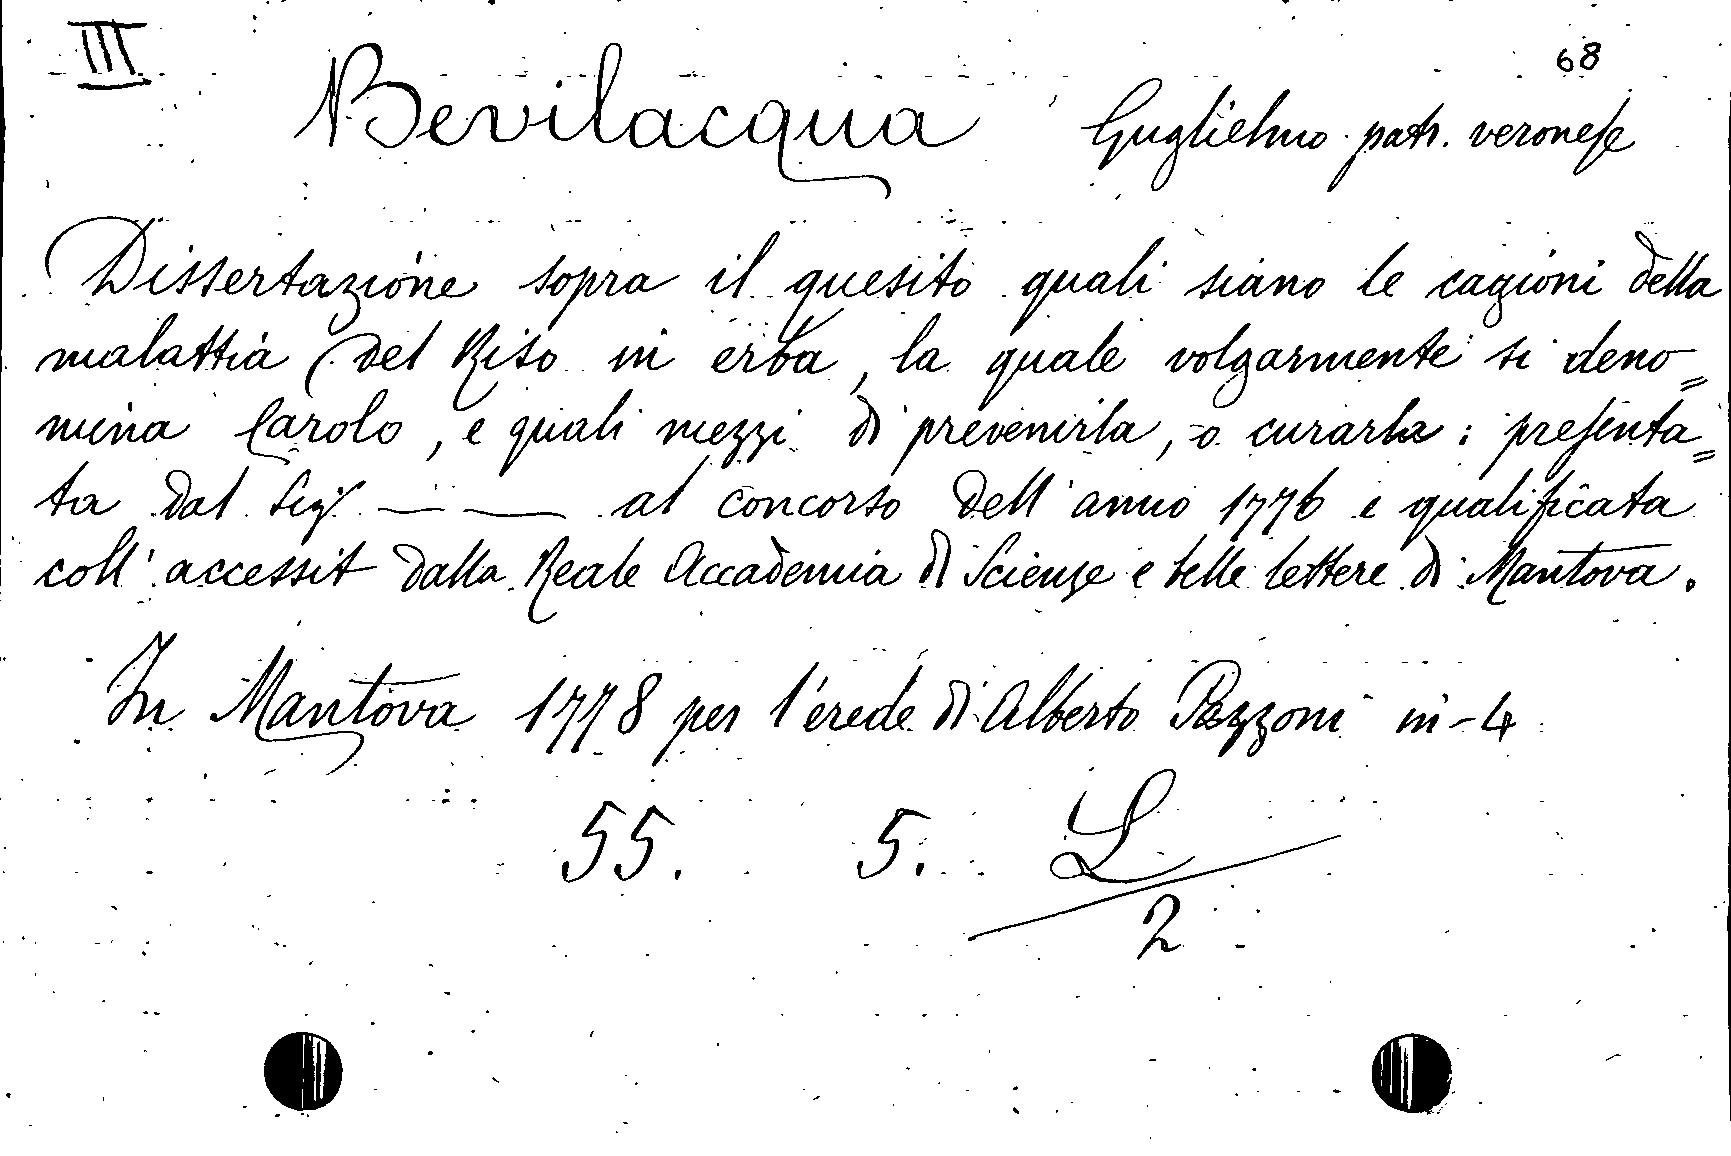 III
68
Bevilacqua Guglielmo patr. veronese
Dissertazione sopra il quesito quali siano le cagioni della
malattia del Riso in erba, la quale volgarmente si deno=
mina Carolo, e quali mezzi di prevenirla, o curarla: presenta=
ta dal Sigr — — al concorso dell'anno 1776 e qualificata
coll'accessit dalla Reale Accademia di Scienze e belle lettere di Mantova.
In Mantova 1778 per l'erede di Alberto Pazzoni in-4
55. 5. L
2